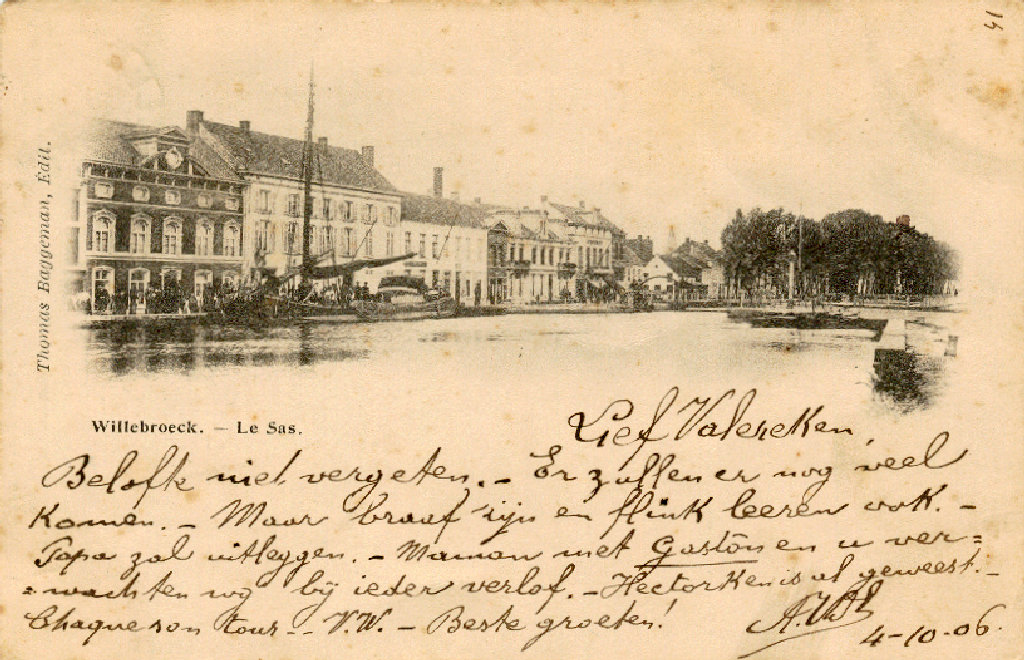 14
Thomas Baggeman, Edit.
Willebroeck. — Le Sas.
Lief Valereken,
Belofte niet vergeten. - Er zullen er nog veel
komen. - Maar braaf zijn en flink leeren ook. -
Papa zal uitleggen. - Maman met Gaston en u ver=
=wachten wij bij ieder verlof. - Hectorken is al geweest. -
Chaque son tour - - V.W. - Beste groeten!
4-10-06.